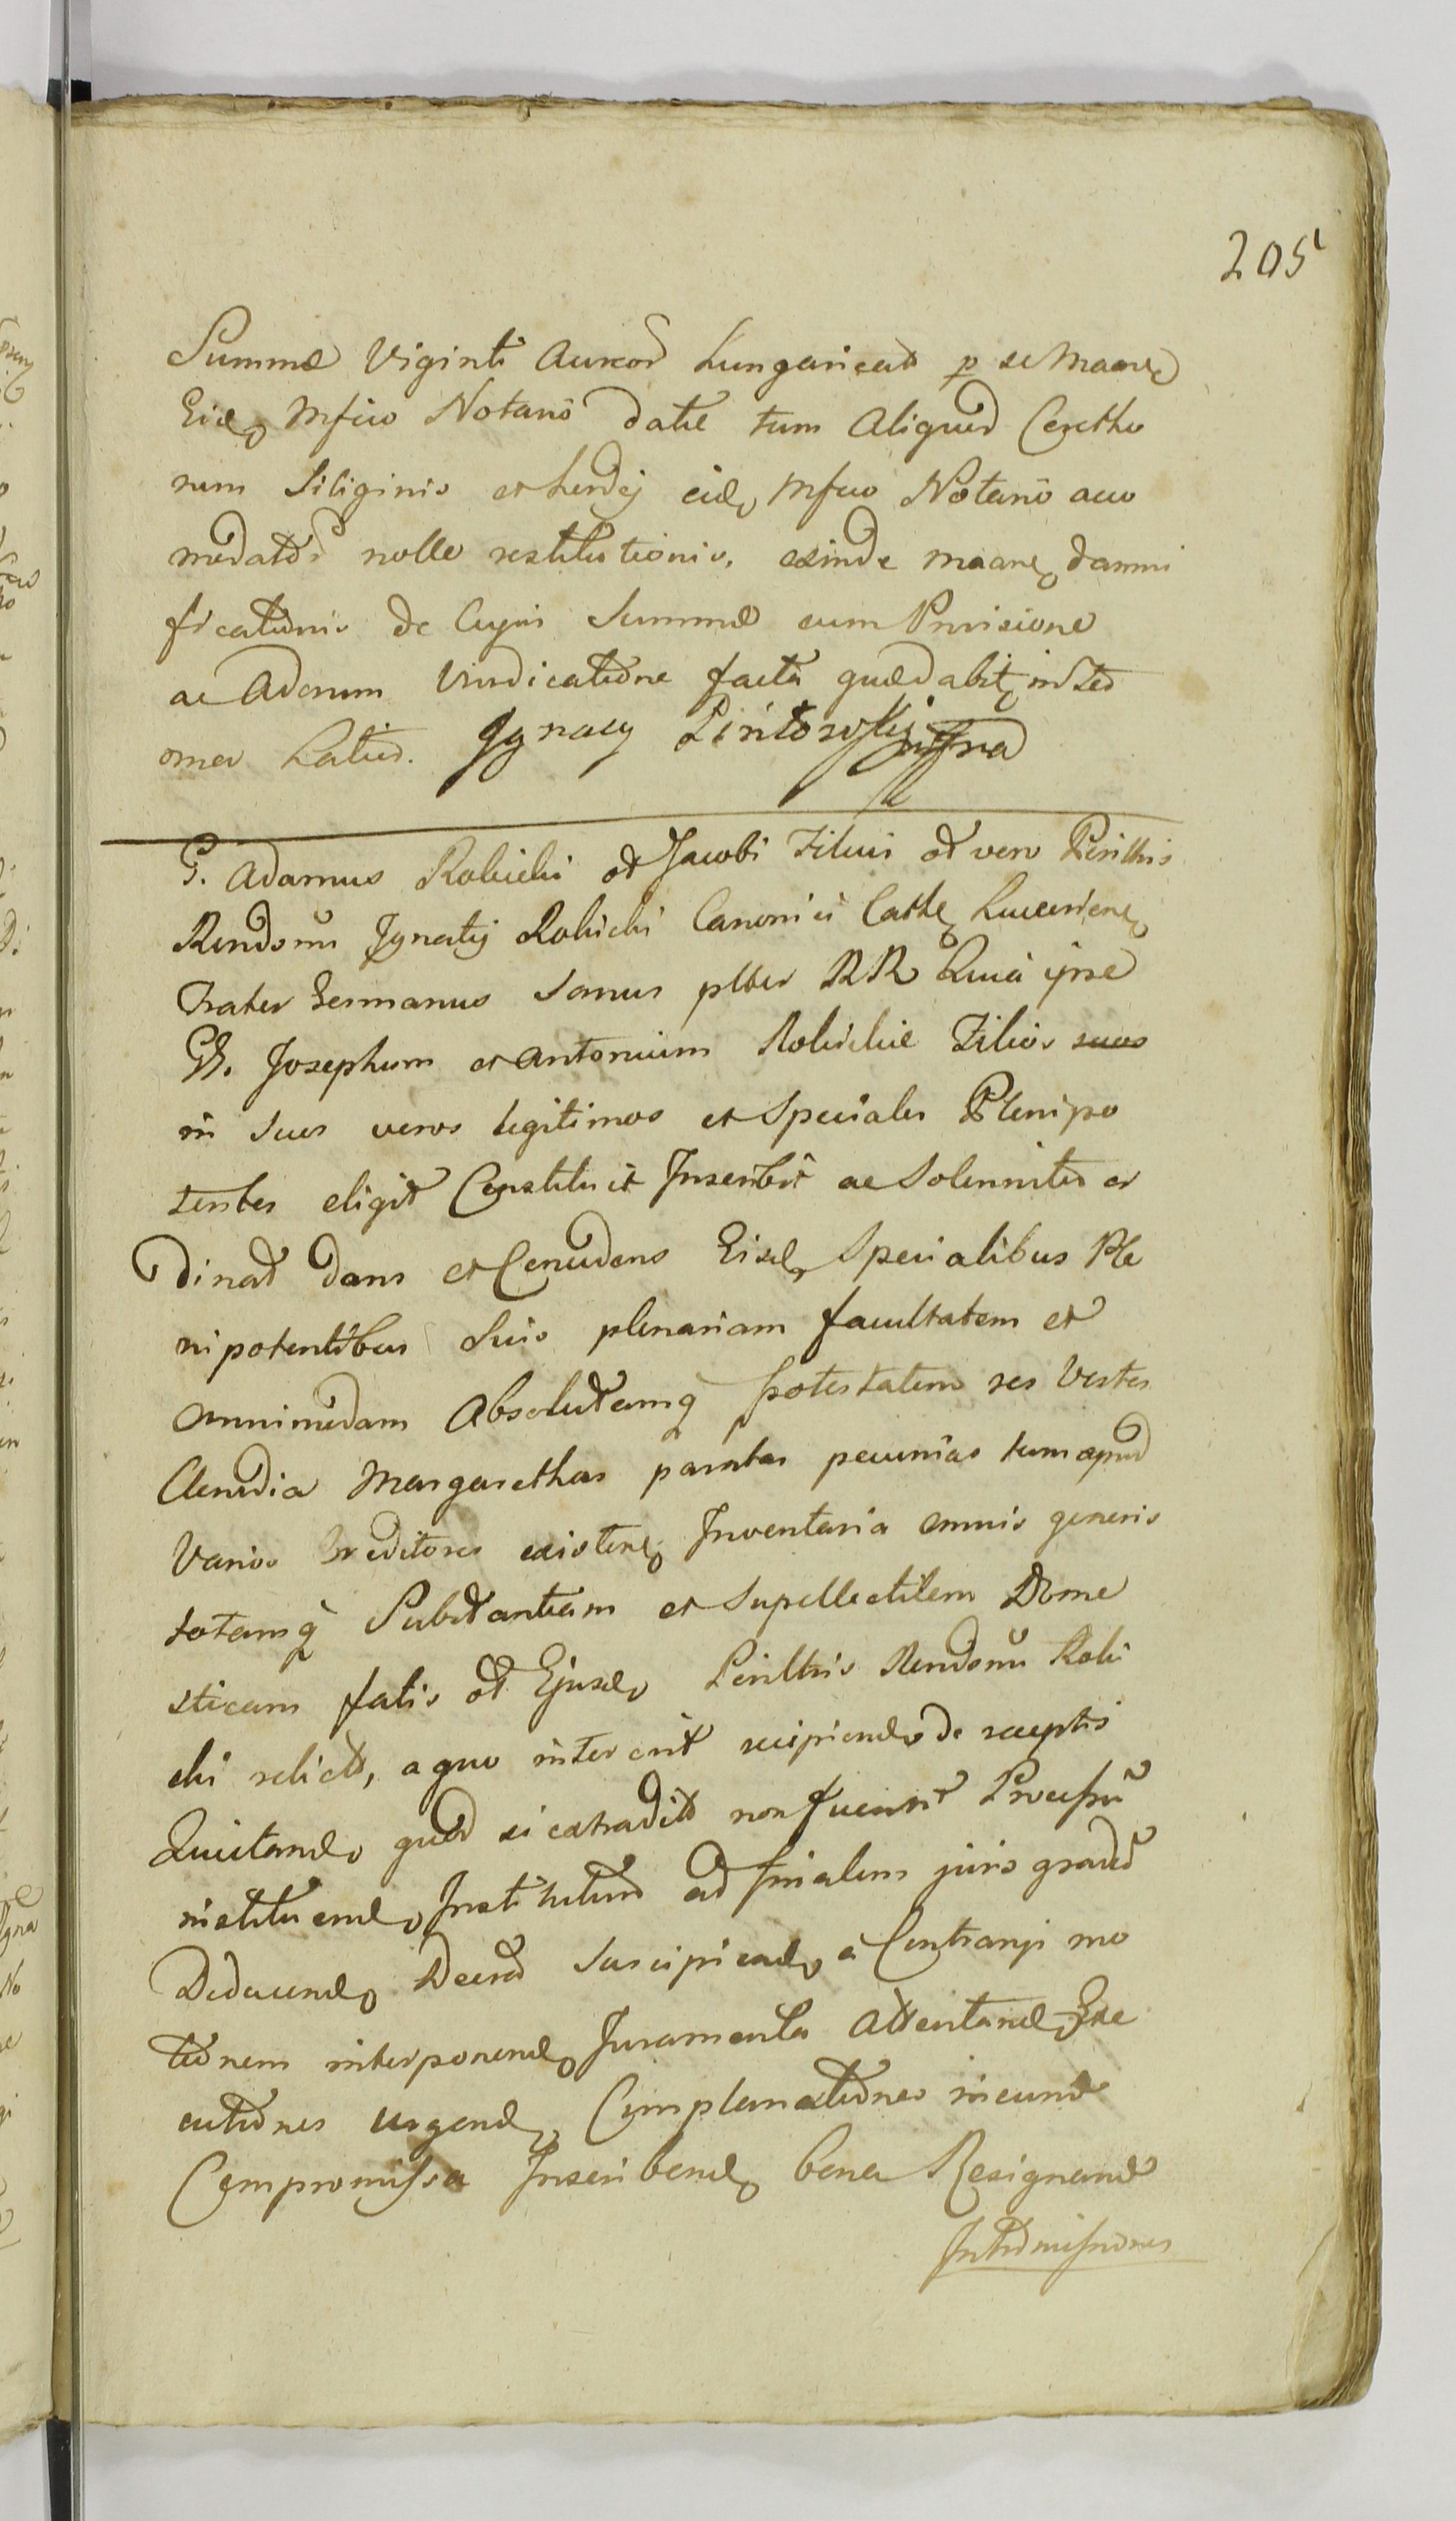 205
Summæ Viginti Aureor Hungarical p se Maare
Eide Mfico Notario datæ tum Aliquod Coretho
rum Siliginis et hordej eide Mfico Notario acco
modator nolle restitutionis, exinde maare damni
ficationis de Cujus Summæ cum Provisione
ac Adorum Vindicatione facta quæd abit
omer latius. Ignacy mpria
G. Adamus Robicki od Jacobi Filius od vero Perillris
Rendomi Ignatij Robicki Canonici Cathe Luceoriene
Frater Germanus Sanus ptter RR Quia ipse
GG. Josephum et Antonium Robickie Filios suos
in suos veros legitimos et Speciales Plenipo
tentes eligit Constituit Inscribit ac Solenniter or
dinat dans et Concedens Eisde Specialibus Ple
nipotentibus Suis plenariam facultatem et
omnimodam Absolutamq potestatem res Vestes
Clenodia Margarethas paratas pecunias tum apud
Varios Creditores existene Inventaria omnis generis
totamq Substantiam et Supellectilem Dome
sticam fatis od Ejusde Perillris Rendomi Robi
cki relict, a quo intererit recipiende de receptis
Quietande quod si extradit non fuerint Processu
instituende Institutum ad finalem juris gradu
Deducende Decret Suscipiende a Contrarijs mo
tionem interponende Juramenta Attentande Exe
cutiones urgende Complanationes ineund
Compromissa Inscribende bona Resignand
Intromissiones